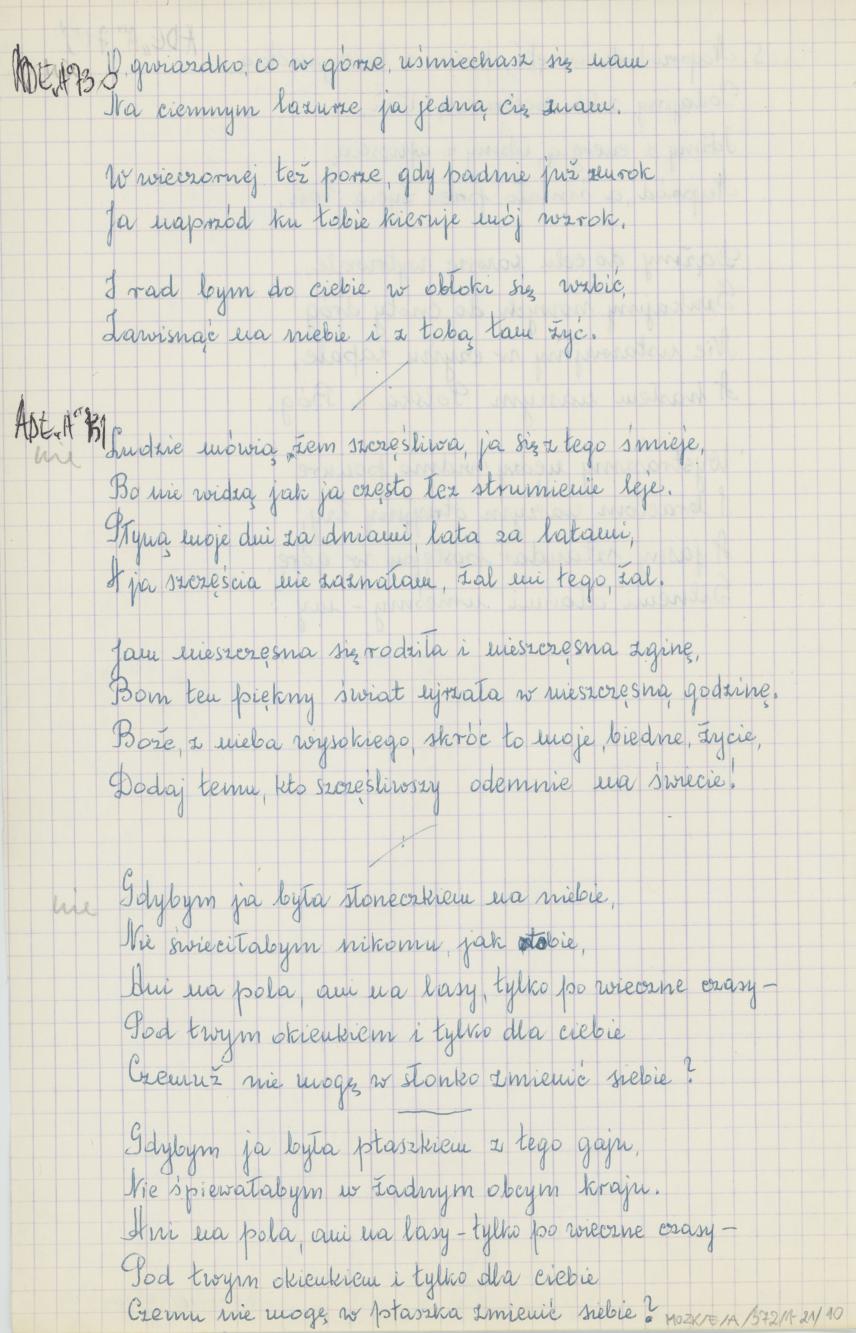 ADE„A"73
O, gwiazdko, co w górze, uśmiechasz się nam
Na ciemnym lazurze ja jedną cię znam.
W wieczornej też porze, gdy padnie już zmrok
Ja naprzód ku tobie kieruje mój wzrok.
I rad bym do ciebie w obłoki się wzbić,
Zawisnąć na niebie i z tobą tam żyć.
Ludzie mówią, żem szczęśliwa, ja się z tego śmieje,
nie
Bo nie widzą jak ja często łez strumienie leje.
Płyną moje dni za dniami, lata za latami,
A ja szczęścia nie zaznałam, żal mi tego, żal.
Jam nieszczęsna się rodziła i nieszczęsna zginę,
Bom ten piękny świat ujrzała w nieszczęsną godzinę.
Boże, z nieba wysokiego, skróć to moje, biedne, życie,
Dodaj temu, kto szczęśliwszy odemnie na świecie!
nie
Gdybym ja była słoneczkiem na niebie,
Nie świeciłabym nikomu, jak tobie,
Ani na pola, ani na lasy, tylko po wieczne czasy –
Pod twym okienkiem i tylko dla ciebie
Czemuż nie mogę w słonko zmienić siebie?
Gdybym ja była ptaszkiem z tego gaju,
Nie śpiewałabym w żadnym obcym kraju.
Ani na pola, ani na lasy – tylko po wieczne czasy –
Pod twym okienkiem i tylko dla ciebie
Czemu nie mogę w ptaszka zmienić siebie?